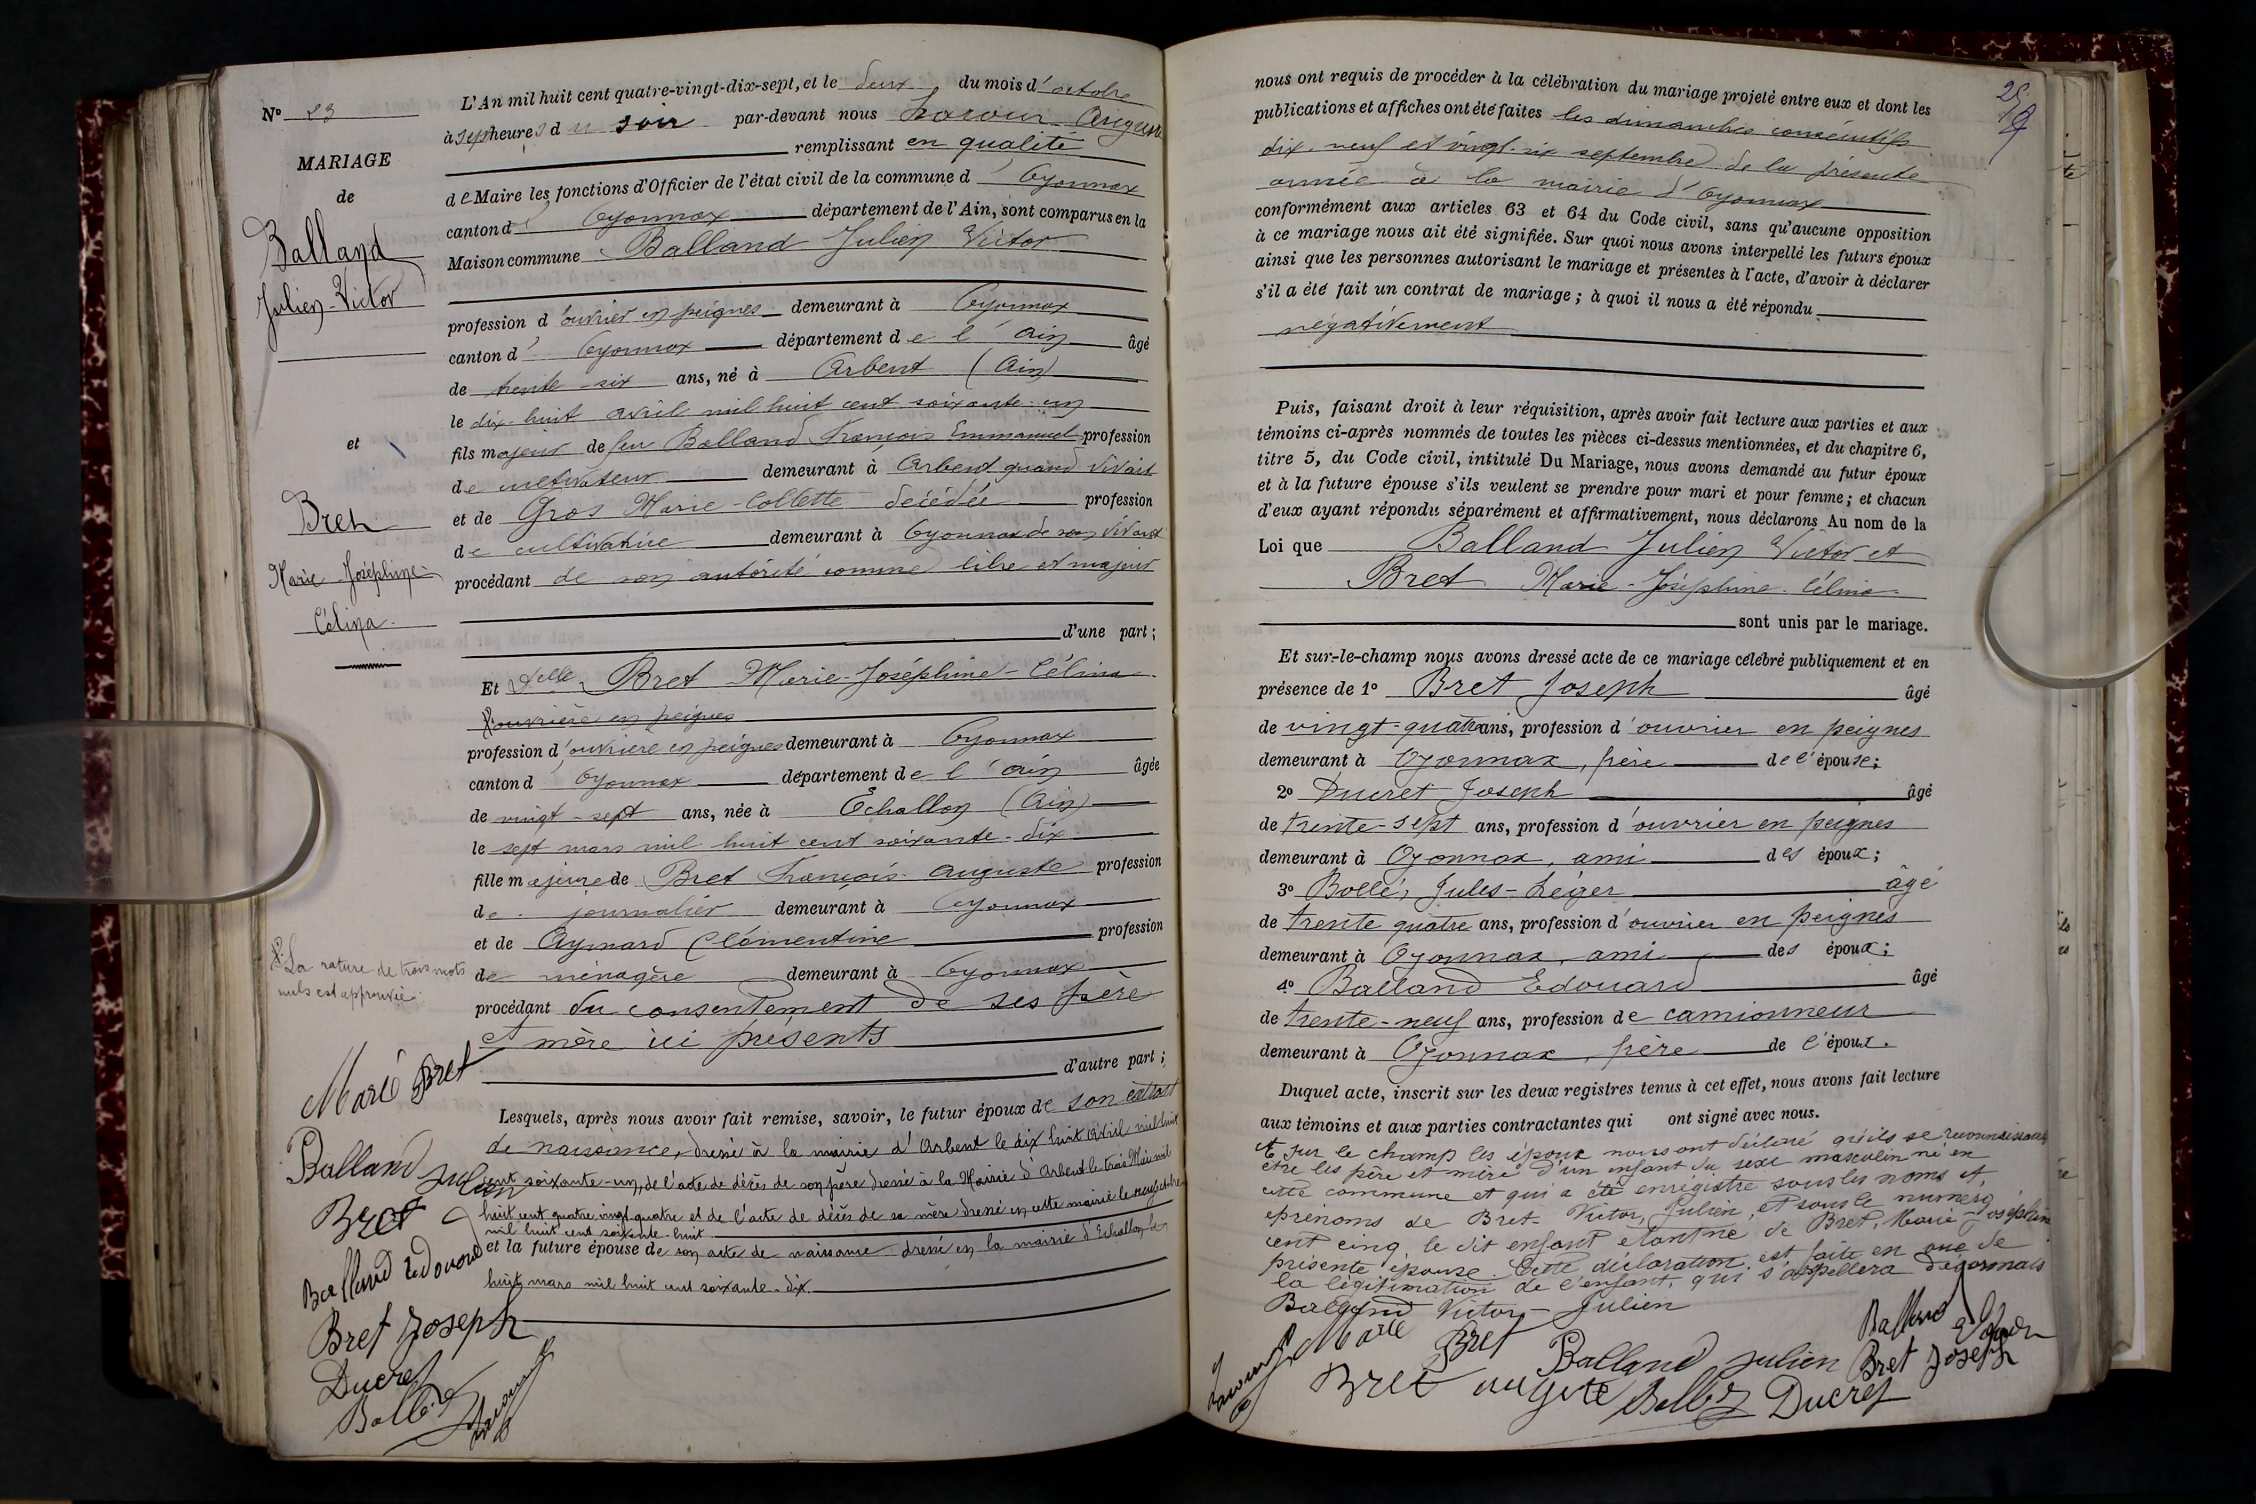 N° 23
MARIAGE
de
Balland
Julien-Victor
et
Bret
Marie Joséphine
Célina
L'An mil huit cent quatre-vingt-dix-sept, et le deux du mois d'octobre
à sept heures du soir par-devant nous Lacour Auguste
remplissant en qualité
de Maire les fonctions d'Officier de l'état civil de la commune d'Oyonnax
canton d'Oyonnax département de l'Ain, sont comparus en la
Maison commune Balland Julien Victor
profession d'ouvrier en peignes demeurant à Oyonnax
canton d'Oyonnax département de l'Ain âgé
de trente-six ans, né à Arbent (Ain)
le dix-huit avril mil huit cent soixante-un
fils majeur de feu Balland François Emmanuel profession
de cultivateur demeurant à Arbent quand vivait
et de Gros Marie-Collette décédée profession
de cultivatrice demeurant à Oyonnax de son vivant
procédant de son autorité comme libre et majeur
d'une part;
Et Delle Bret Marie-Joséphine-Célina
ouvrière en peignes
profession d'ouvrière en peignes demeurant à Oyonnax
canton d Oyonnax département de l'Ain âgée
de vingt-sept ans, née à Échallon (Ain)
le sept mars mil huit cent soixante-dix
fille majeure de Bret François-Auguste profession
de journalier demeurant à Oyonnax
et de Aymard Clémentine profession
de ménagère demeurant à Oyonnax
procédant du consentement de ses père
et mère ici présents
d'autre part;
La rature de trois mots
nuls est approuvée
Lesquels, après nous avoir fait remise, savoir, le futur époux de son extrait
de naissance, dressé à la mairie d'Arbent le dix huit avril mil huit
cent soixante-un, de l'acte de décès de son père dressé à la Mairie d'Arbent le trois Mai mil
huit cent quatre vingt quatre et de l'acte de décès de sa mère dressé en cette mairie le neuf octobre
mil huit cent soixante-huit
et la future épouse de son acte de naissance dressé en la mairie d'Echallon le
huit mars mil huit cent soixante-dix.
Marie Bret
Balland Julien
Bret
Balland Edouard
Bret Joseph
Ducret
Bollé
Lacour
nous ont requis de procéder à la célébration du mariage projeté entre eux et dont les
publications et affiches ont été faites les dimanches consécutifs
dix-neuf et vingt-six septembre de la présente
année à la mairie d'Oyonnax
conformément aux articles 63 et 64 du Code civil, sans qu'aucune opposition
à ce mariage nous ait été signifiée. Sur quoi nous avons interpellé les futurs époux
ainsi que les personnes autorisant le mariage et présentes à l'acte, d'avoir à déclarer
s'il a été fait un contrat de mariage; à quoi il nous a été répondu
négativement
Puis, faisant droit à leur réquisition, après avoir fait lecture aux parties et aux
témoins ci-après nommés de toutes les pièces ci-dessus mentionnées, et du chapitre 6,
titre 5, du Code civil, intitulé Du Mariage, nous avons demandé au futur époux
et à la future épouse s'ils veulent se prendre pour mari et pour femme; et chacun
d'eux ayant répondu séparément et affirmativement, nous déclarons Au nom de la
Loi que Balland Julien Victor et
Bret Marie-Joséphine-Célina
sont unis par le mariage.
Et sur-le-champ nous avons dressé acte de ce mariage célébré publiquement et en
présence de 1° Bret Joseph âgé
de vingt-quatre ans, profession d'ouvrier en peignes
demeurant à Oyonnax, frère de l'épouse;
2° Ducret Joseph âgé
de trente-sept ans, profession d'ouvrier en peignes
demeurant à Oyonnax, ami des époux;
3° Bollé, Jules-Léger âgé
de trente quatre ans, profession d'ouvrier en peignes
demeurant à Oyonnax, ami des époux;
4° Balland Edouard âgé
de trente-neuf ans, profession de camionneur
demeurant à Oyonnax, frère de l'époux.
Duquel acte, inscrit sur les deux registres tenus à cet effet, nous avons fait lecture
aux témoins et aux parties contractantes qui ont signé avec nous.
Et sur le champ les époux nous ont déclaré qu'ils se reconnaissent
être les père et mère d'un enfant du sexe masculin né en
cette commune et qui a été enregistré sous les noms et
prénoms de Bret Victor, Julien, et sous le numéro
cent cinq, le dit enfant étant né de Bret, Marie-Joséphine
présente épouse. Cette déclaration est faite en vue de
la légitimation de l'enfant, qui s'appellera désormais
Balland Victor-Julien
Marie Bret
Balland Edouard
Lacour
Balland Julien
Bret Joseph
Bret auguste
Bollé
Ducret